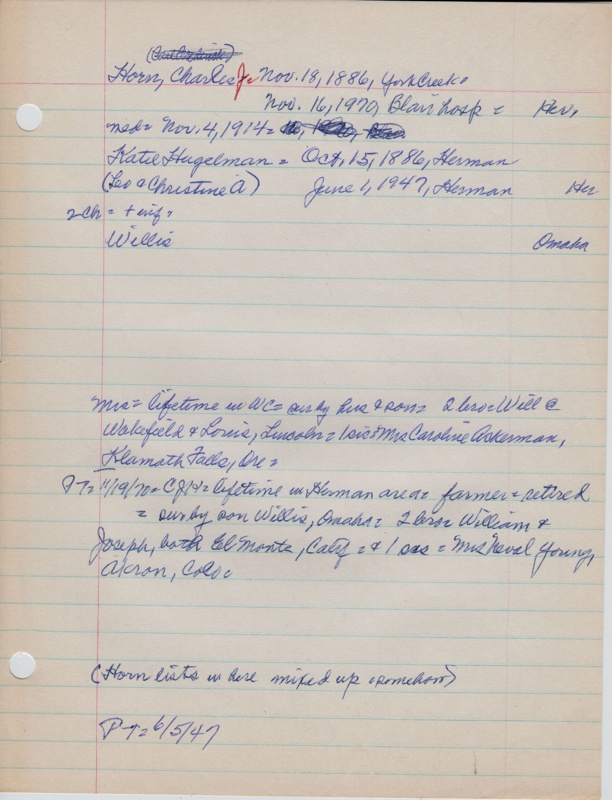 Horn, Charles Jr = Nov. 18, 1886, York Creek =
Nov. 16, 1970, Blair hosp = Her,
med = Nov. 4, 1914 =
Katie Hugelman = Oct, 15, 1886, Herman
(Leo & Christine A) June 1, 1947, Herman Her
2 ch = + inf =
Willis Omaha
Mrs = lifetime in WC = sur by hus & son = 2 bro = Will @
Wakefield & Louis, Lincoln = 1 sis = Mrs Caroline Ackerman,
Klamath Falls, Ore =
PT = 11/19/70 = CJH = lifetime in Herman area = farmer = retired
= sur by son Willis, Omaha = 2 bro = William &
Joseph, both El Monte, Calif = & 1 sis = Mrs Naval Young,
Akron, Colo =
(Horn lists in here mixed up somehow)
PT = 6/5/47